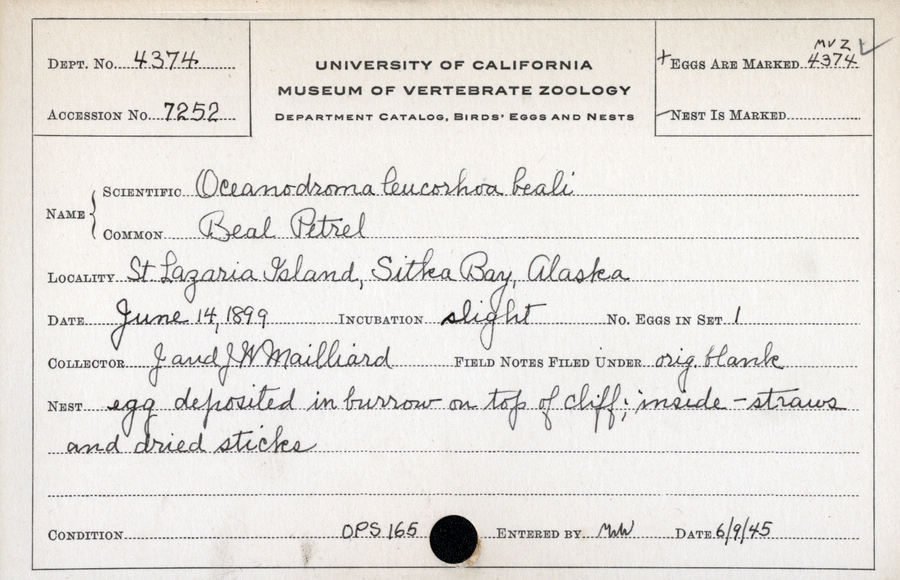 DEPT. No. 4374
ACCESSION No. 7252
UNIVERSITY OF CALIFORNIA
MUSEUM OF VERTEBRATE ZOOLOGY
DEPARTMENT CATALOG, BIRDS' EGGS AND NESTS
MVZ
+ EGGS ARE MARKED 4374 ✓
- NEST IS MARKED
NAME
SCIENTIFIC Oceanodroma leucorhoa beali
COMMON Beal Petrel
LOCALITY St. Lazaria Island, Sitka Bay, Alaska
DATE June 14, 1899 INCUBATION slight No. EGGS IN SET 1
COLLECTOR J and J W Mailliard FIELD NOTES FILED UNDER orig. blank
NEST egg deposited in burrow on top of cliff; inside - straws
and dried sticks
CONDITION OPS 165 ENTERED BY MW DATE 6/9/45